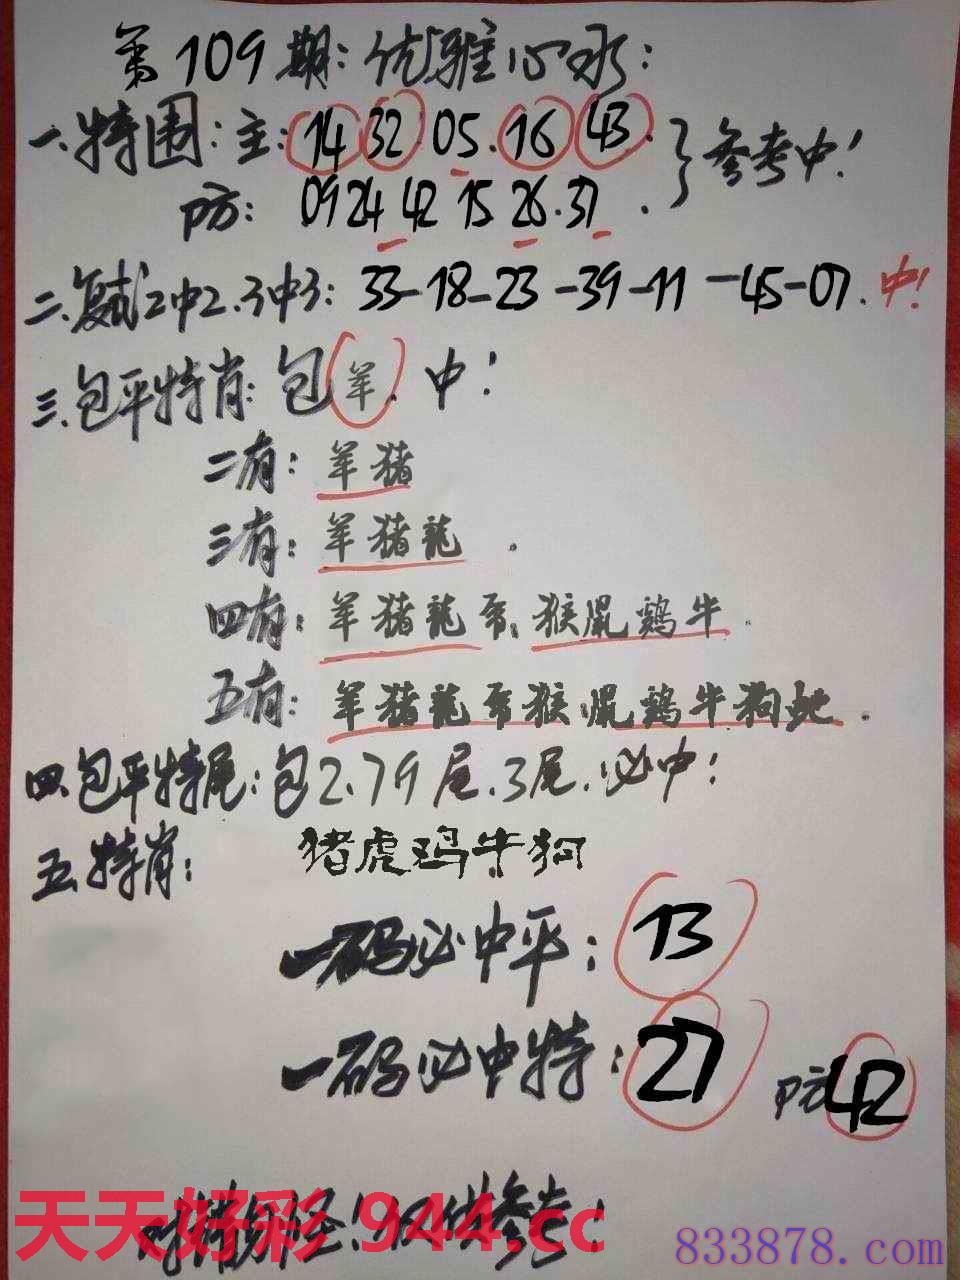 第109期:优雅心水:
一.特围:主:14 32 05.16 43.
防:09 24 42 15 26.37.
参考中!
二.复式2中2.3中3:33-18-23-39-11-45-07.中!
三.包平特肖:包羊.中!
二有:羊猪
三有:羊猪龍.
四有:羊猪龍 猴鼠鷄牛.
五有:羊猪龍 猴鼠鷄牛狗蛇.
四.包平特尾:包2.79尾.3尾.必中:
五.特肖:猪虎鸡牛狗
一码必中平:13
一码必中特:27 防42
天天好彩 944.cc
仅供参考!
833878.com